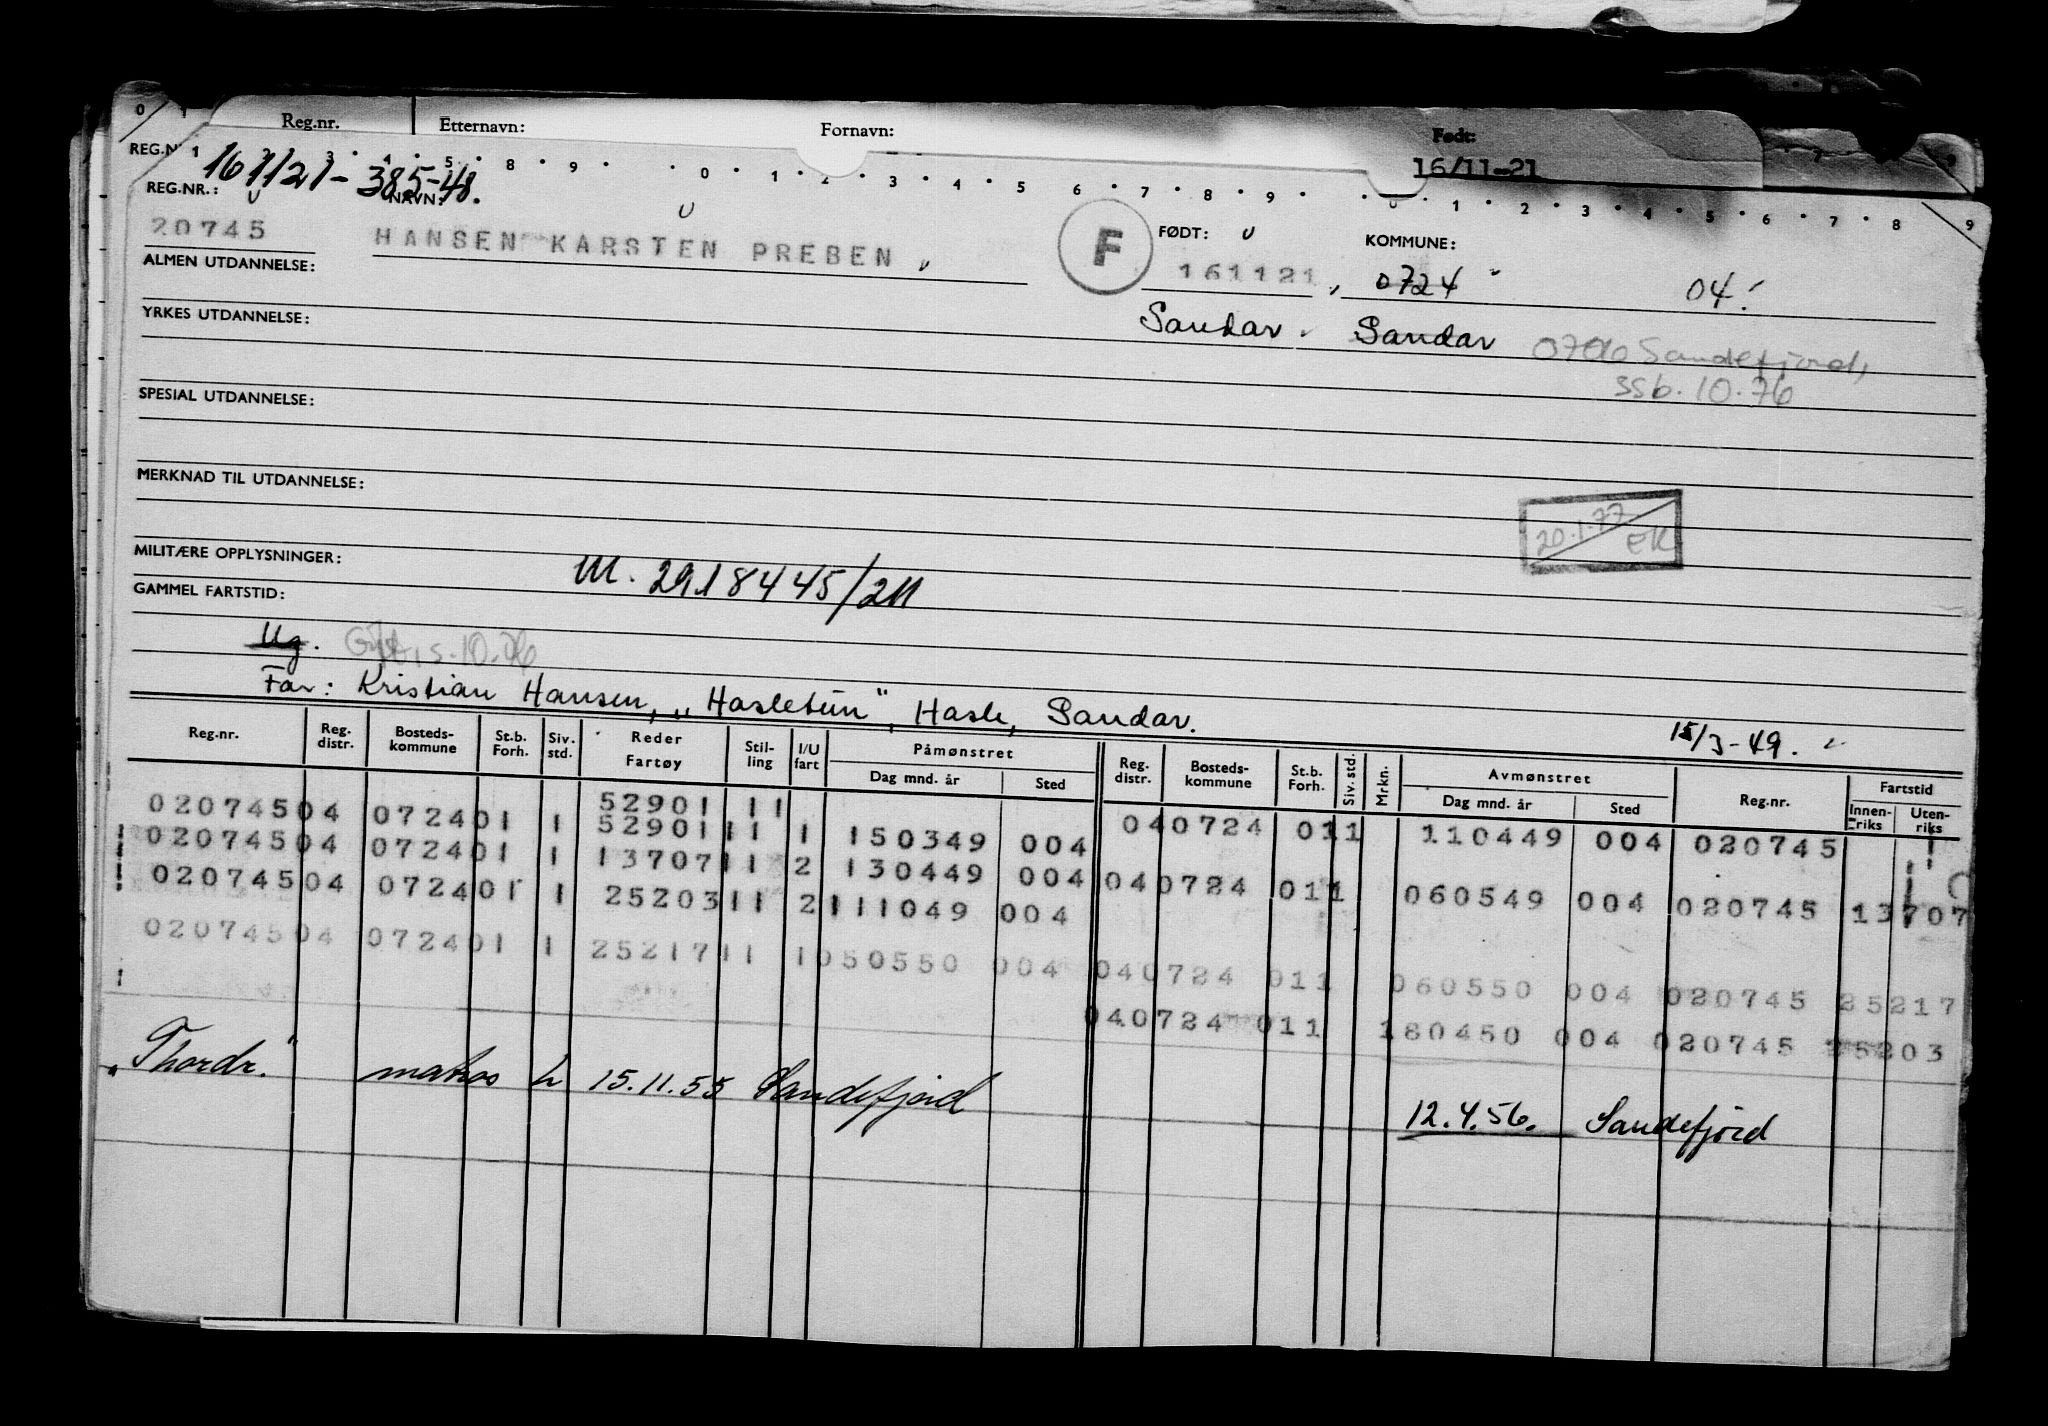 Reg.nr. Etternavn: Fornavn: Født:
16/11-21
REG.N
16 1121 - 385-48.
REG.NR.: NAVN: FØDT: KOMMUNE:
20745 HANSEN KARSTEN PREBEN F 161121 0724 04
ALMEN UTDANNELSE:
Sandar. Sandar 0706 Sandefjord,
YRKES UTDANNELSE:
ssb. 10.76
SPESIAL UTDANNELSE:
MERKNAD TIL UTDANNELSE:
20.1.77 EK
MILITÆRE OPPLYSNINGER:
M. 2918445/2M
GAMMEL FARTSTID:
Ug. Gift, s. 10.76
Far: Kristian Hansen, „Hasletun", Hasle, Sandar.
15/3-49.
Reg.nr. Reg. distr. Bosteds- kommune St.b. Forh. Siv. std. Reder Fartøy Stil- ling I/U fart Påmønstret Dag mnd. år Sted Reg. distr. Bosteds- kommune St.b. Forh. Siv. std. Mrkn. Avmønstret Dag mnd. år Sted Reg.nr. Fartstid Innen- riks Uten- riks
52901 11
020745 04 0724 01 1 52901 11 1 150349 004 04 0724 01 1 110449 004 020745
020745 04 0724 01 1 13707 11 2 130449 004 04 0724 01 1 060549 004 020745 13707
020745 04 0724 01 1 25203 11 2 111049 004
020745 04 0724 01 1 25217 11 1 050550 004 04 0724 01 1 060550 004 020745 25217
04 0724 01 1 180450 004 020745 25203
„Thordr." matros 15.11.55 Sandefjord 12.4.56. Sandefjord